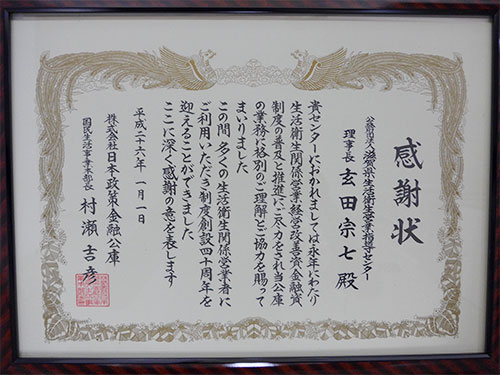 感謝状
公益財団法人滋賀県生活衛生営業指導センター
理事長 玄田宗七殿
貴センターにおかれましては永年にわたり
生活衛生関係営業経営改善資金融資
制度の普及と推進にご尽力をされ当公庫
の業務に格別のご理解とご協力を賜って
まいりました
この間多くの生活衛生関係営業者に
ご利用いただき制度創設四十周年を
迎えることができました
ここに深く感謝の意を表します
平成二十六年一月一日
株式会社日本政策金融公庫
国民生活事業本部長 村瀬吉彦